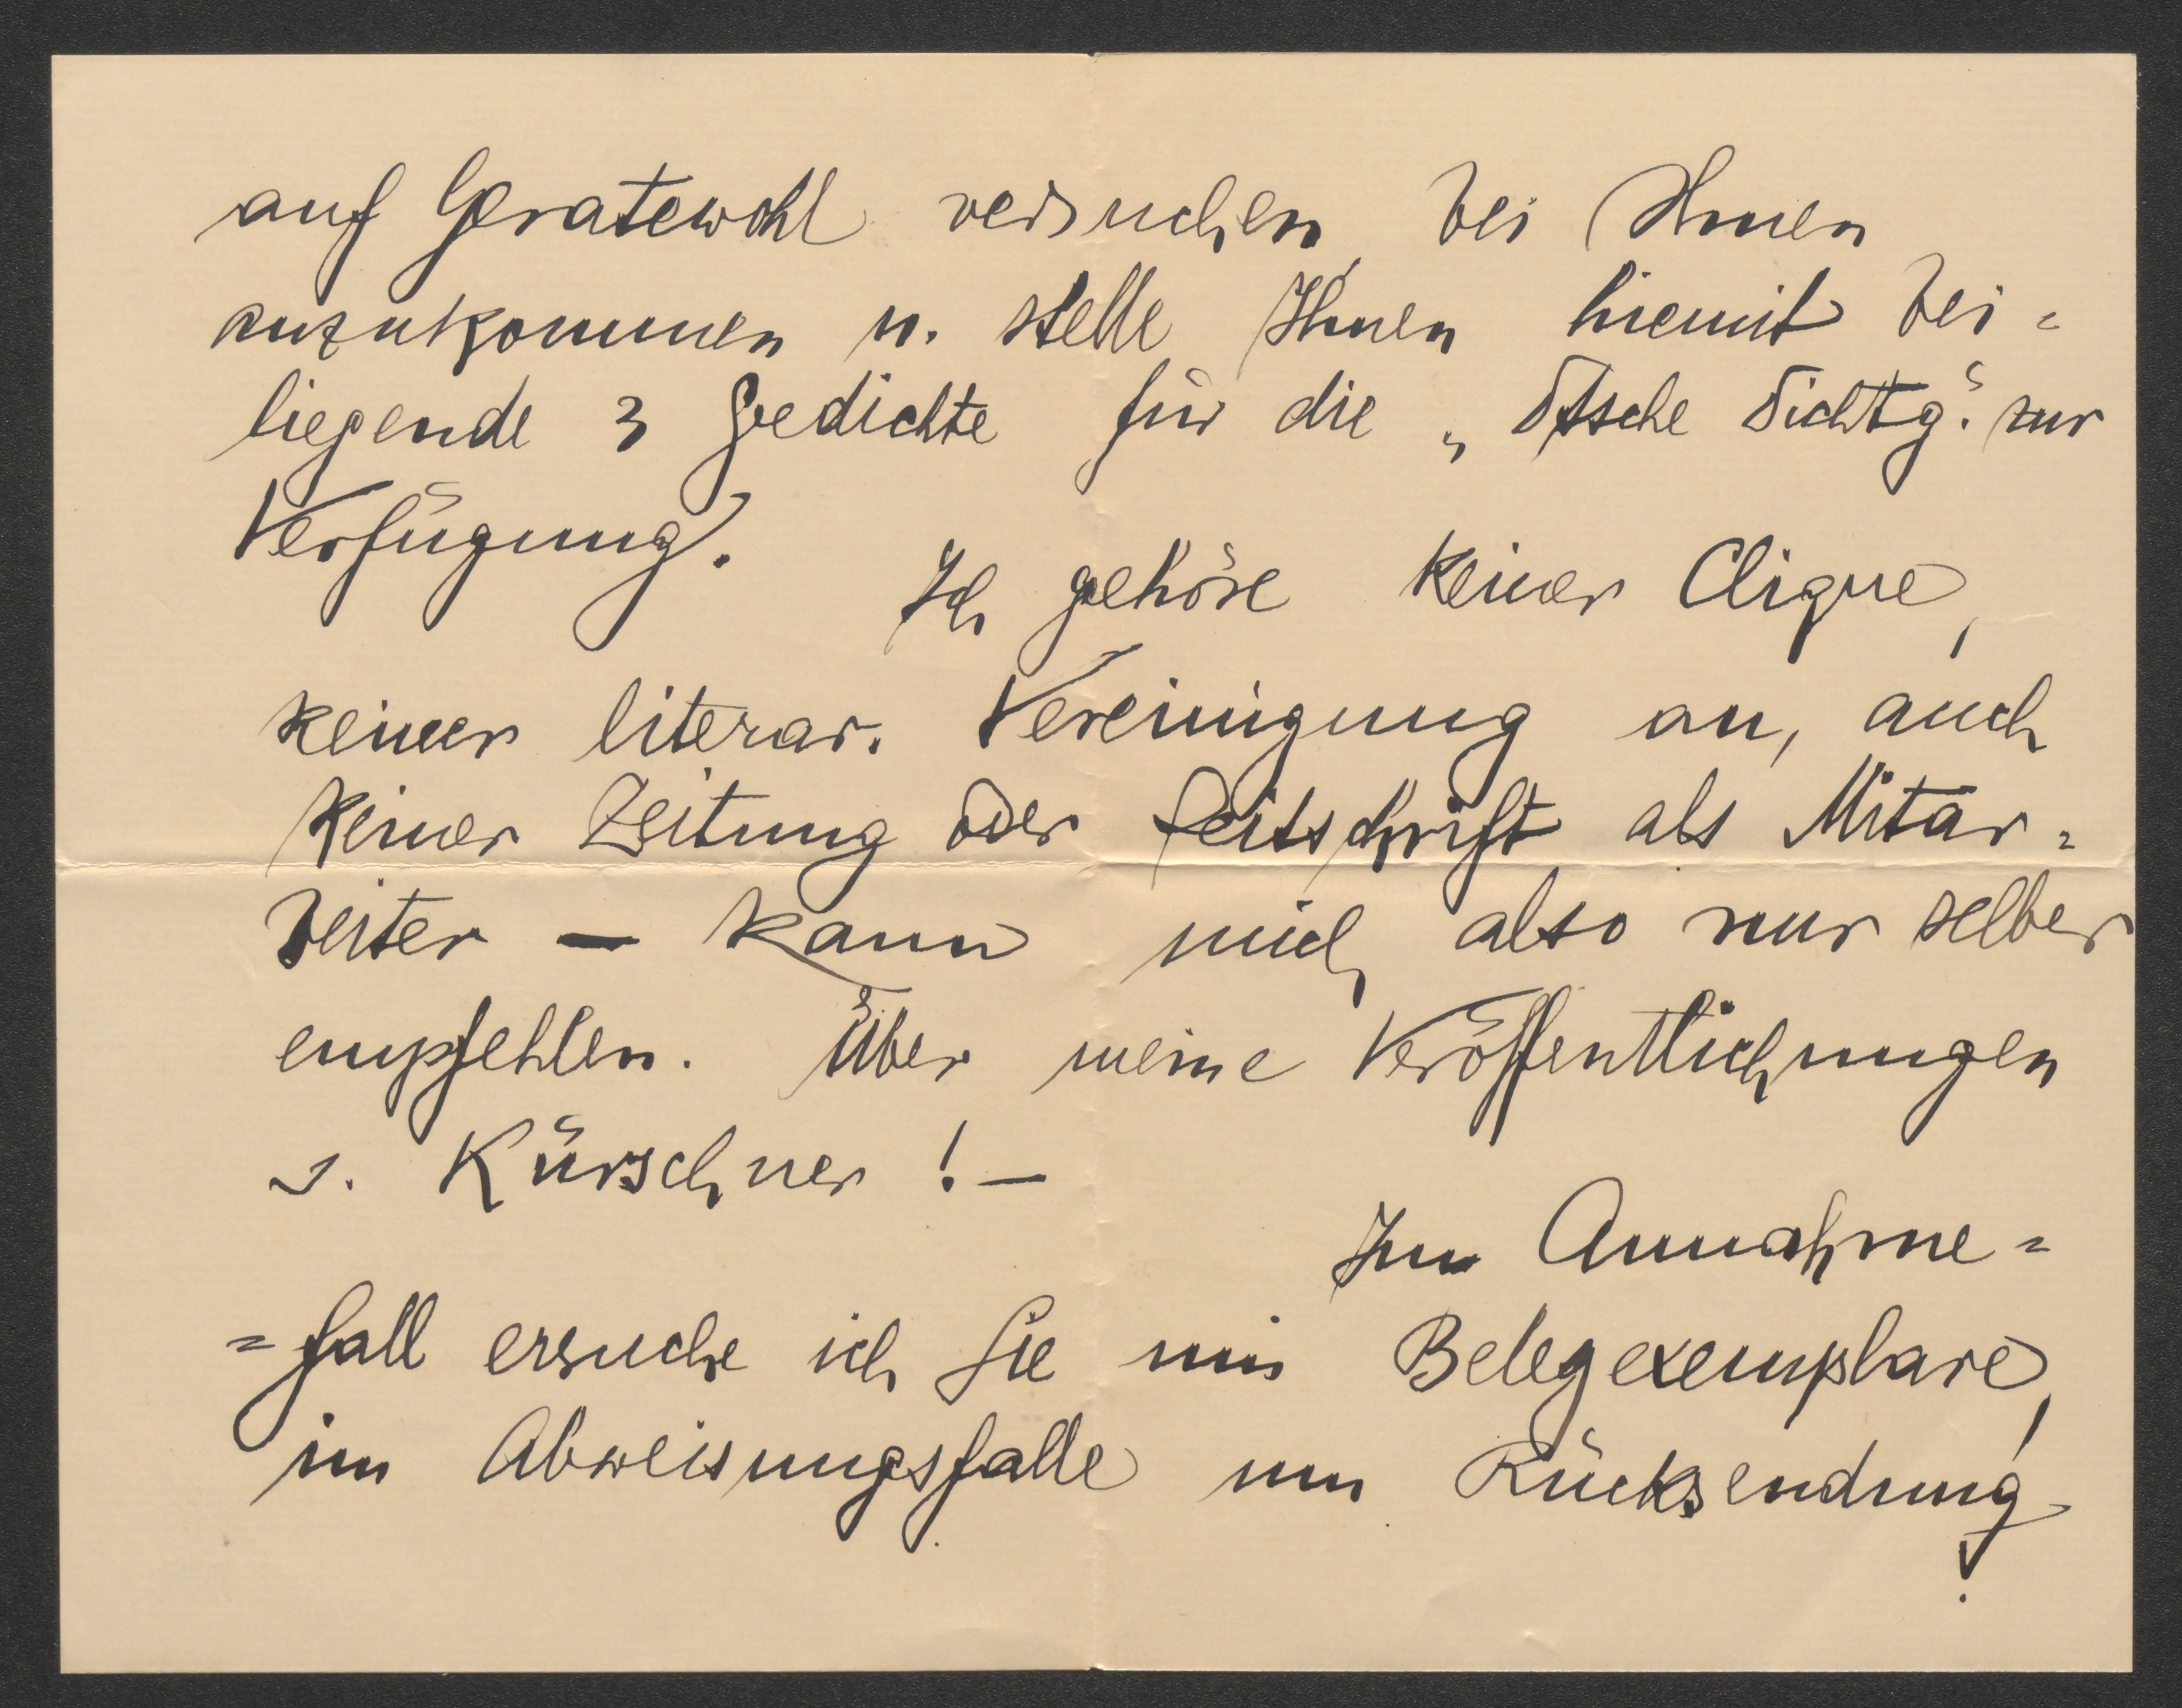 auf Geratewohl versuchen, bei Ihnen
anzukommen u. stelle Ihnen hiemit bei=
liegende 3 Gedichte für die „Dtsche Dichtg.“ zur
Verfügung.
Ich gehöre keiner Clique,
keiner literar. Vereinigung an, auch
keiner Zeitung oder Zeitschrift als Mitar=
beiter — kann mich also nur selber
empfehlen. Über meine Veröffentlichungen
s. Kürschner! —
Im Annahme=
=fall ersuche ich Sie um Belegexemplare,
im Abweisungsfalle um Rücksendung!